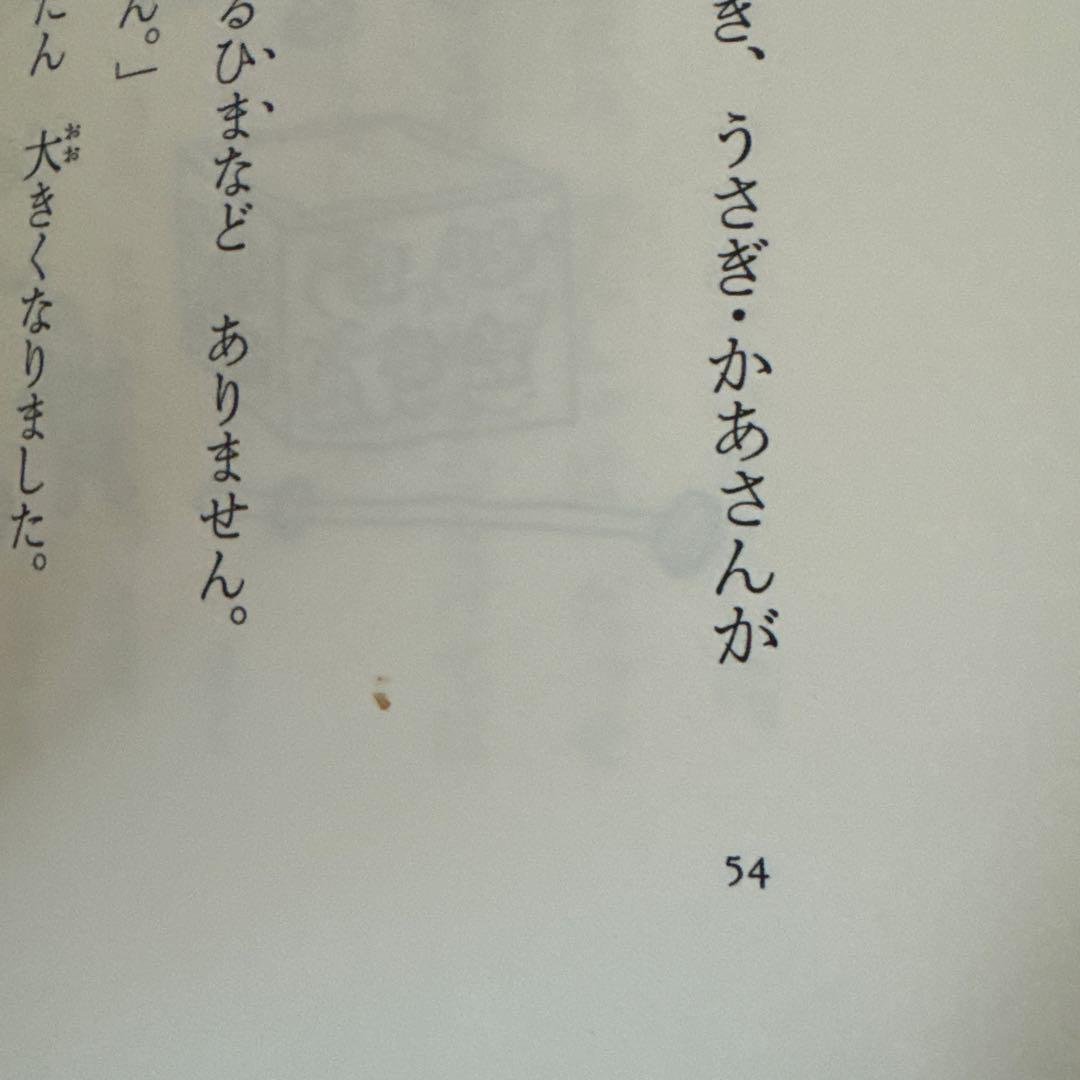 き、 うさぎ・かあさんが
るひまなど ありません。
ん。」
たん 大きくなりました。
おお
54